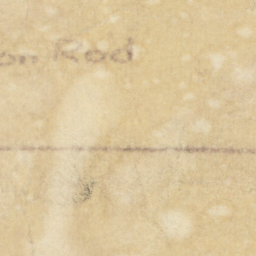 on Rod